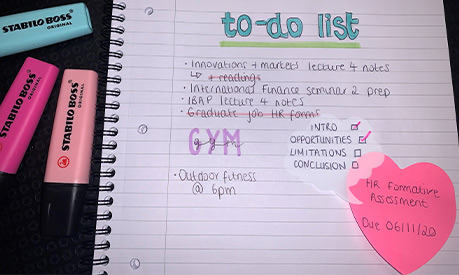 STABILO BOSS
ORIGINAL
STABILO BOSS
ORIGINAL
STABILO BOSS
ORIGINAL
to-do list
· Innovations + markets lecture 4 notes
↳ + readings
· International Finance seminar 2 prep
· IBAP lecture 4 notes
· Graduate job HR forms
INTRO
OPPORTUNITIES
LIMITATIONS
CONCLUSION
GYM
· Outdoor fitness
@ 6pm
HR Formative
Assessment
Due 06/11/20